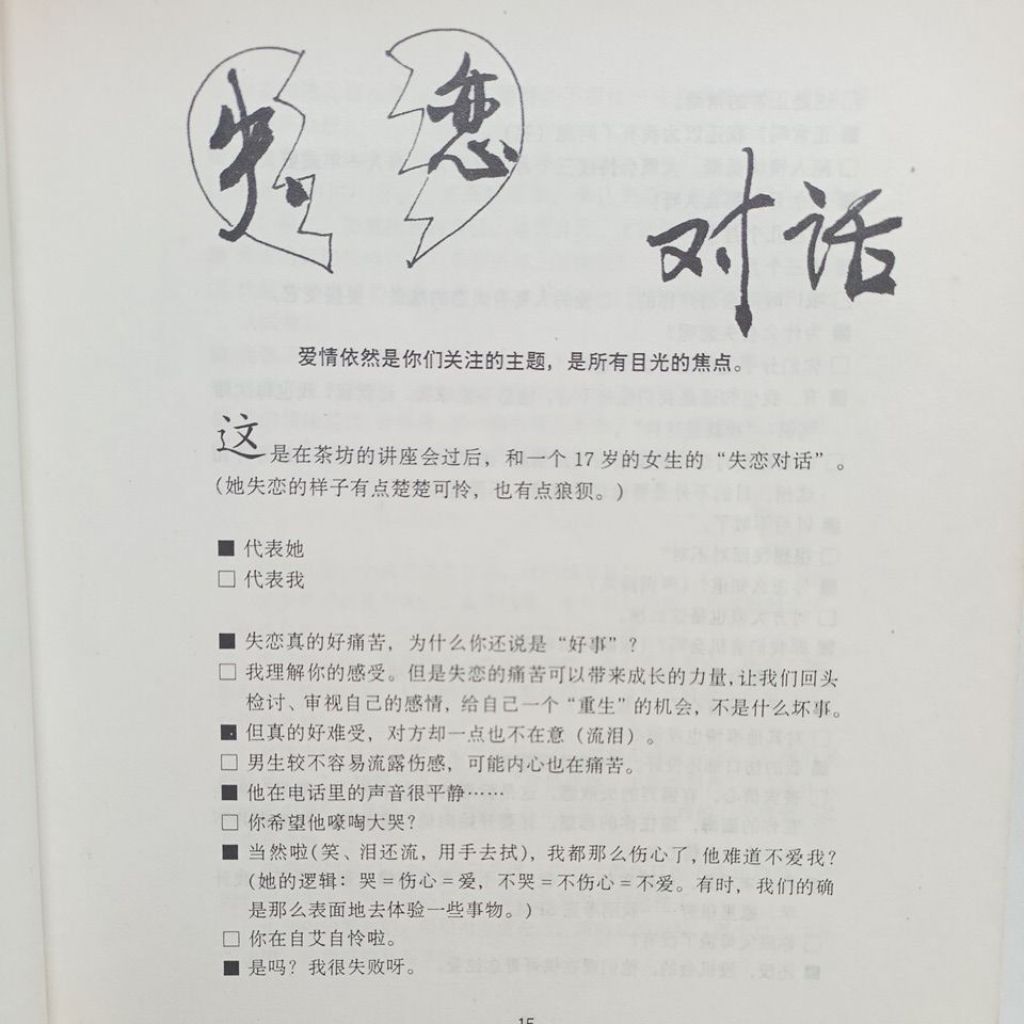 失恋
对话
爱情依然是你们关注的主题，是所有目光的焦点。
这是在茶坊的讲座会过后，和一个 17 岁的女生的“失恋对话”。
（她失恋的样子有点楚楚可怜，也有点狼狈。）
■ 代表她
□ 代表我
■ 失恋真的好痛苦，为什么你还说是“好事”？
□ 我理解你的感受。但是失恋的痛苦可以带来成长的力量，让我们回头
检讨、审视自己的感情，给自己一个“重生”的机会，不是什么坏事。
■ 但真的好难受，对方却一点也不在意（流泪）。
□ 男生较不容易流露伤感，可能内心也在痛苦。
■ 他在电话里的声音很平静……
□ 你希望他嚎啕大哭？
■ 当然啦（笑、泪还流，用手去拭），我都那么伤心了，他难道不爱我？
（她的逻辑：哭＝伤心＝爱，不哭＝不伤心＝不爱。有时，我们的确
是那么表面地去体验一些事物。）
□ 你在自艾自怜啦。
■ 是吗？我很失败呀。
15